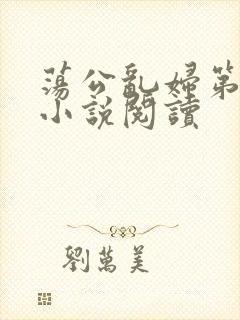 蕩公亂婦第
小說閱讀
劉萬美